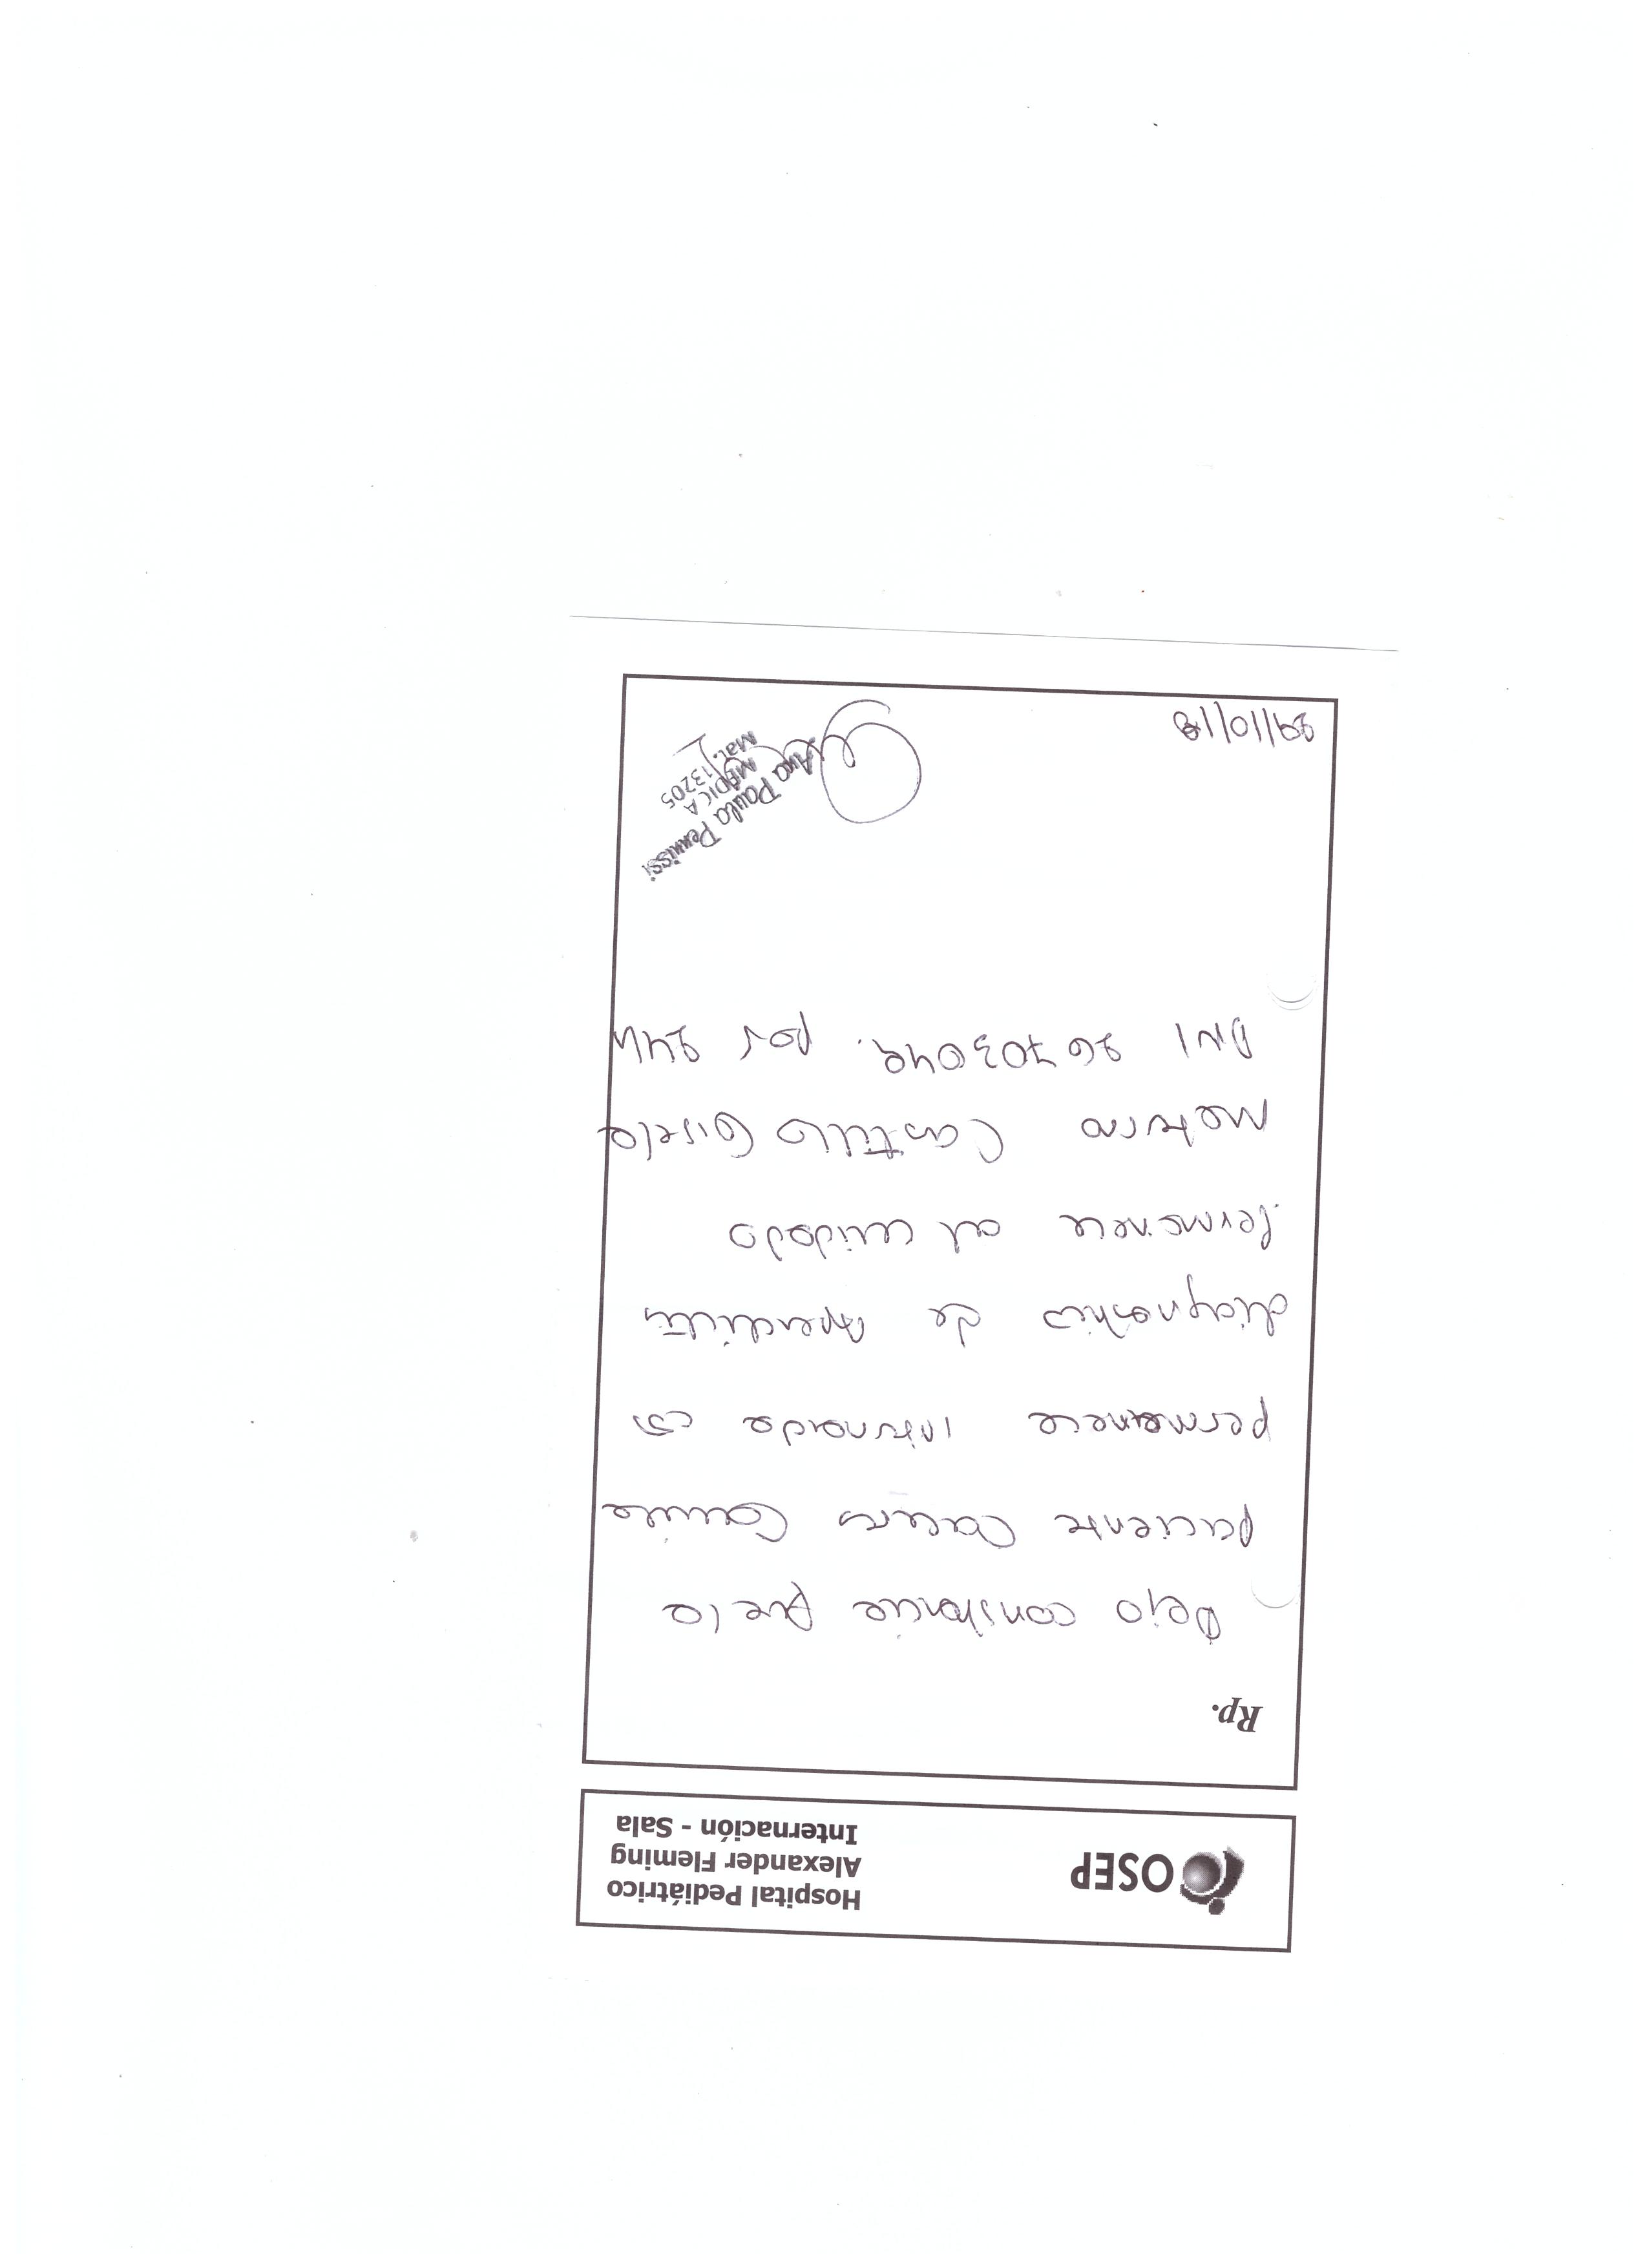 OSEP
Hospital Pediátrico
Alexander Fleming
Internación - Sala
Rp.
Dejo constancia que la
paciente
permanece internada con
diagnostico de apendicitis
Permanece al cuidado
materno Castillo Gisela
DNI por 24h
29/10/18
Ana Paula Pennissi
MEDICA
Mat. 13205